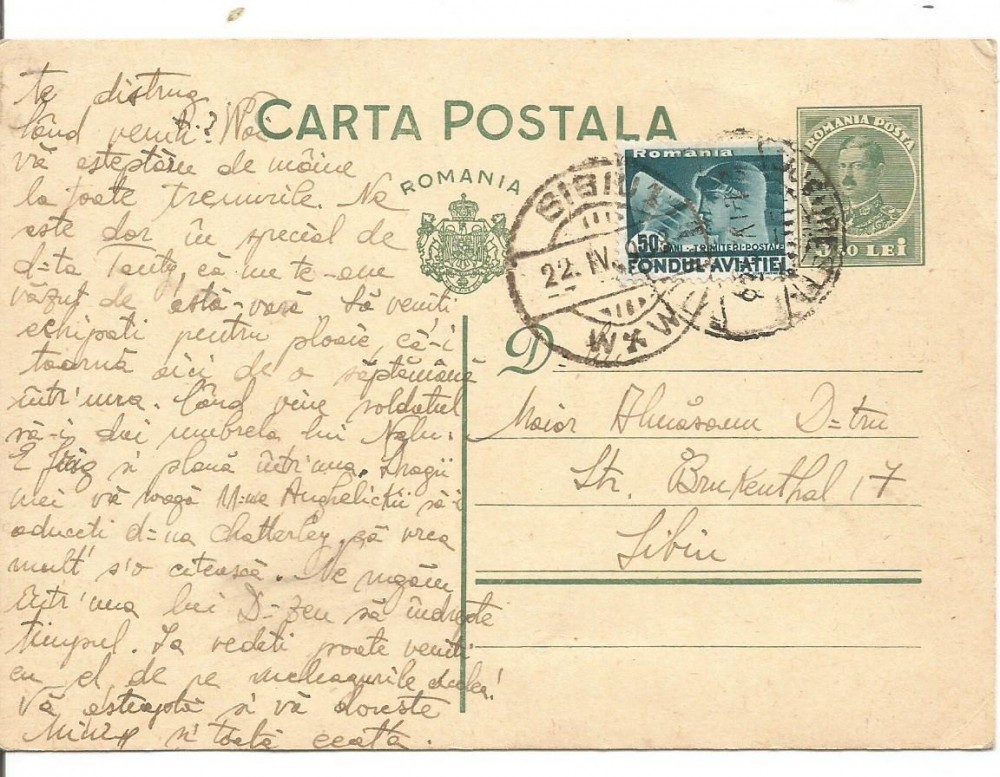 CARTA POSTALA
ROMANIA
ROMANIA POSTA
LEI
Romania
50 BANI - TRIMITERI-POSTALE
FONDUL AVIATIEI
SIBIU 1
22. IV.
te distrug
Când veniti? Noi
vă asteptăm de mâine
la toate trenurile. Ne
este dor în special de
d-ta Tanty, că nu te-am
văzut de astă-vară. Să veniti
echipati pentru ploaie, că-i
toarnă aici de o săptămână
într'una. Când vine soldatul
să-i dai umbrela lui Nelu.
E frig si plouă într'una. Dragii
mei vă roagă M-me Anghelichii să-i
aduceti d-na Chatterley, că vrea
mult s'o citească. Ne rugăm
într'una lui D-zeu să îndrepte
timpul. Ia vedeti poate veniti
cu el de pe meleagurile alea!
Vă asteaptă si vă doreste
si toată ceata.
D
Maior Almăsanu D-tru
Str. Brukenthal 17
Sibiu